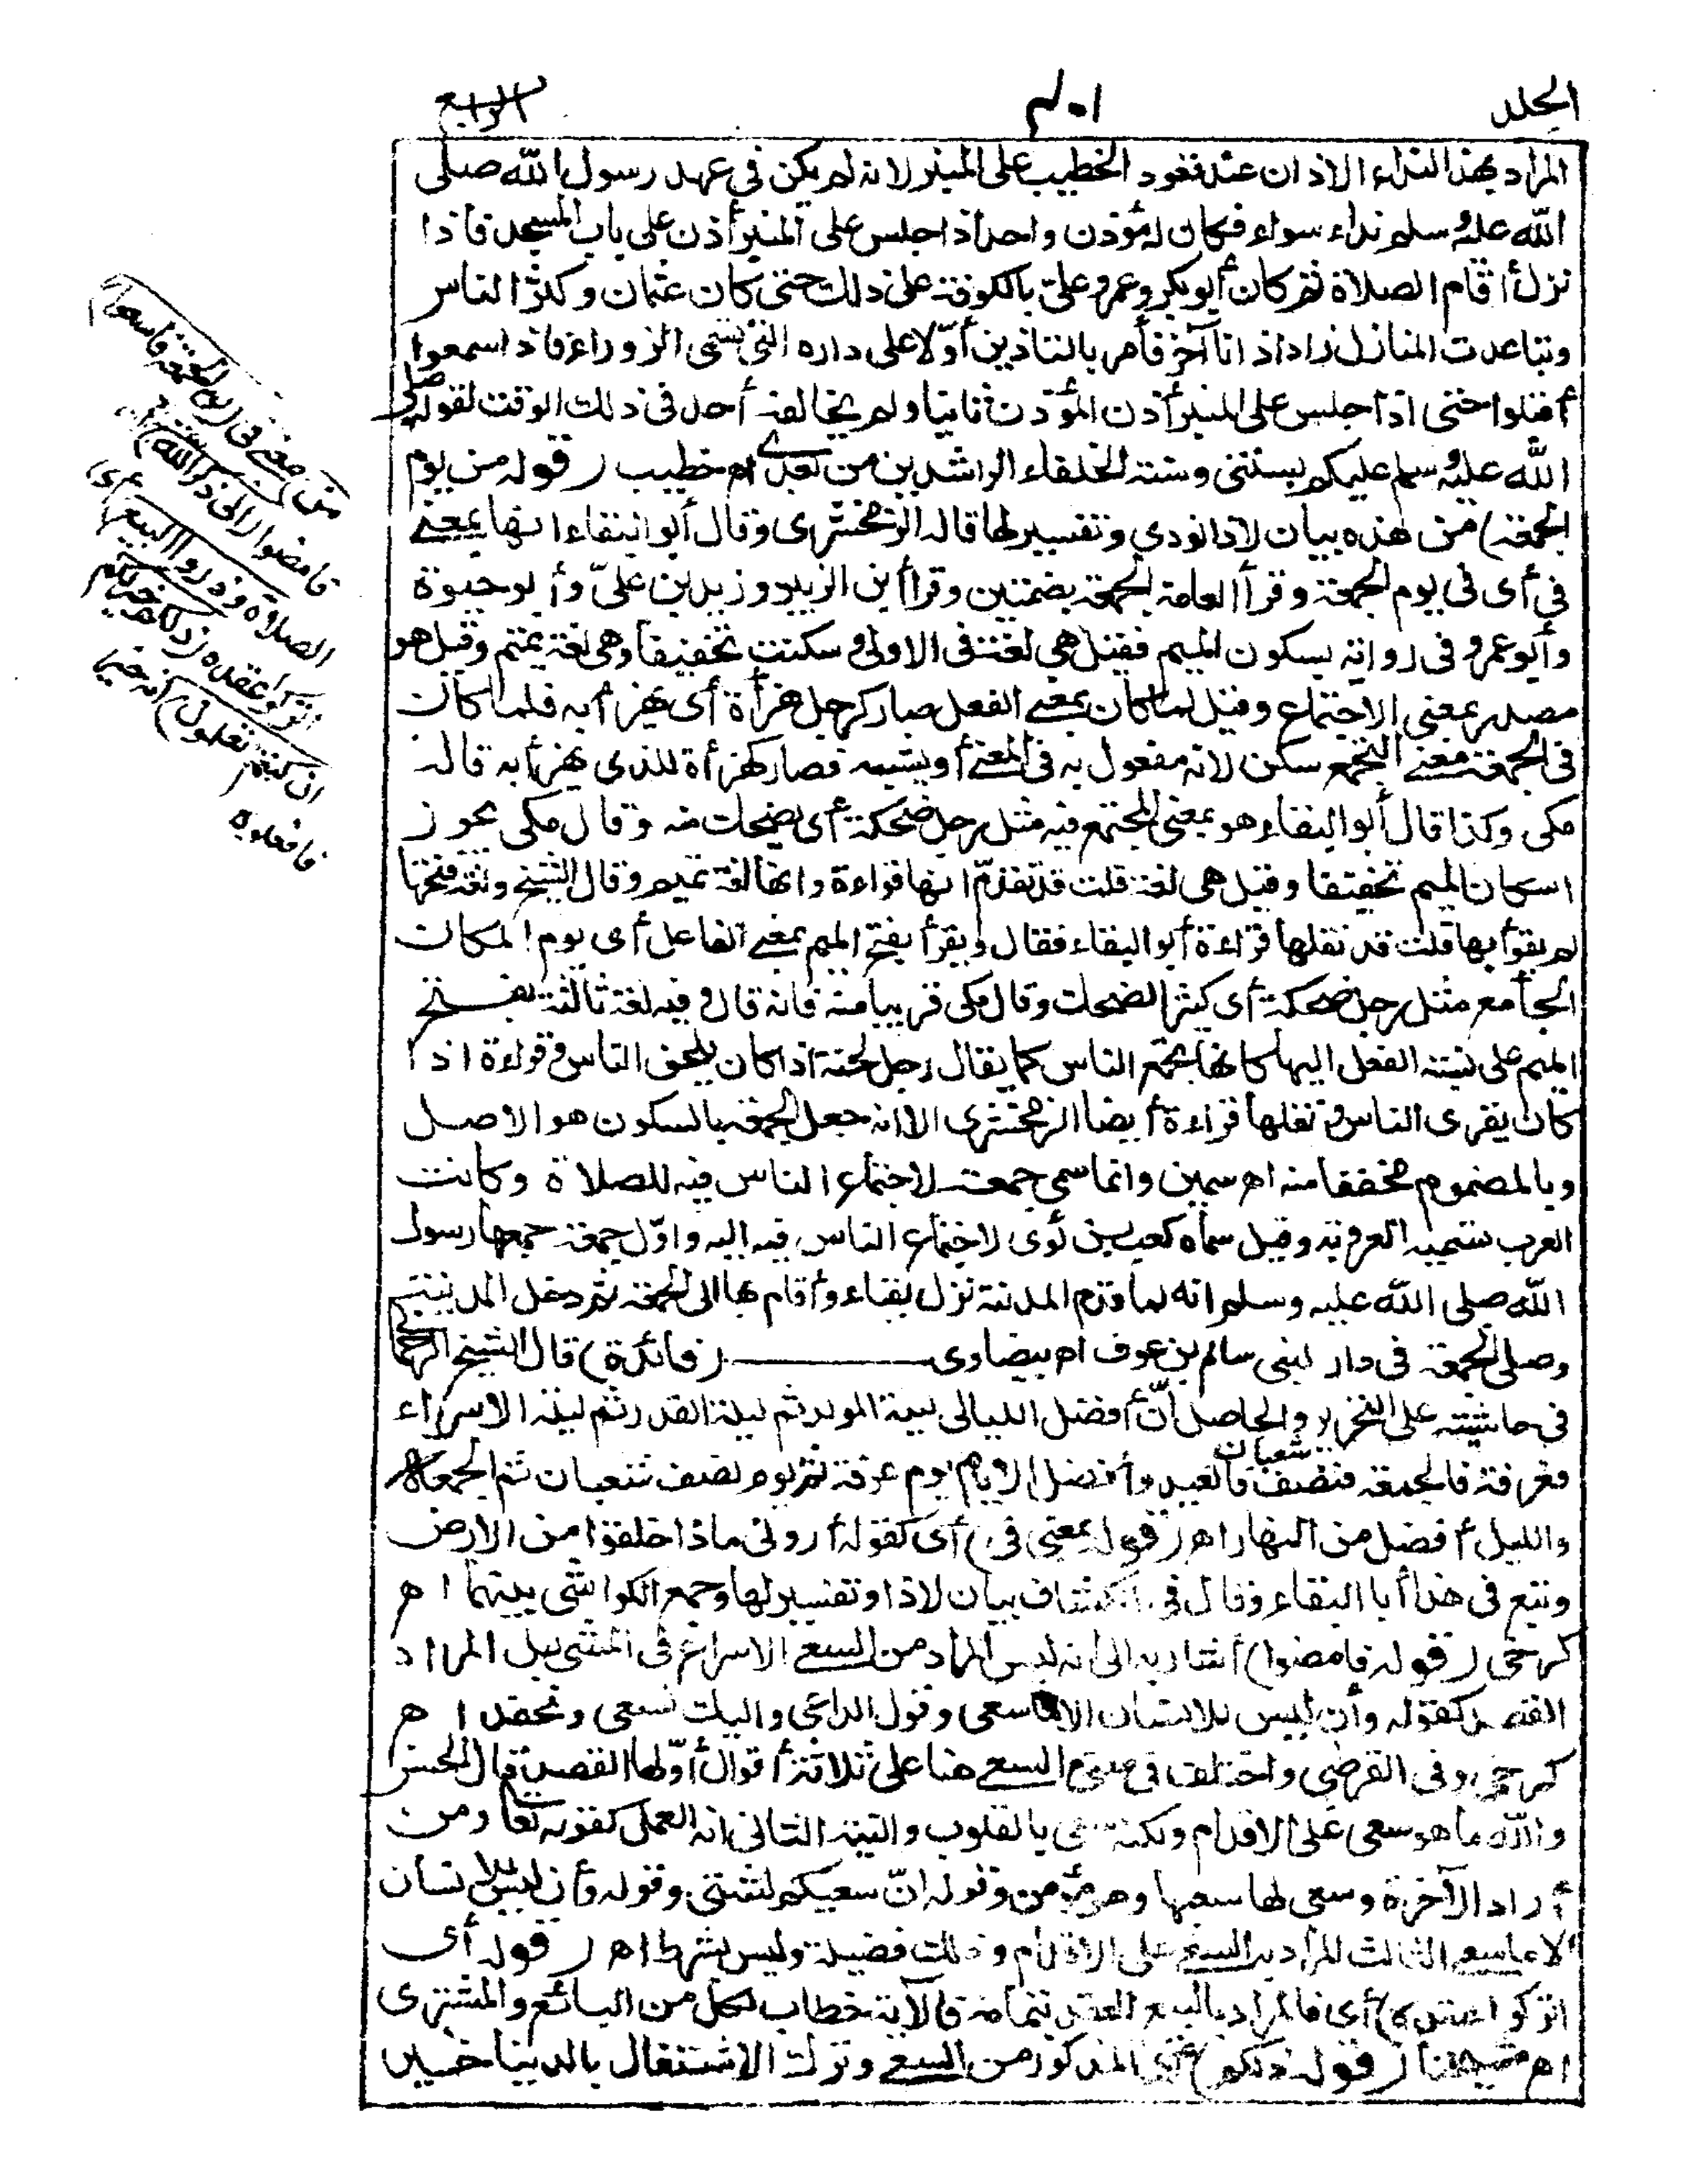 الجلد ٤٠١ الرابع
المراد بهذا النداء الاذان عند قعود الخطيب على المنبر لانه لم يكن في عهد رسول الله صلى
الله عليه وسلم نداء سواه فكان له مؤذن واحد اذا جلس على المنبر أذن على باب المسجد فاذا
نزل أقام الصلاة ثم كان أبو بكر وعمر وعلىّ بالكوفة على ذلك حتى كان عثمان وكثر الناس
وتباعدت المنازل زاد اذانا آخر فأمر بالتاذين أوّلا على داره التى تسمى الزوراء فاذا سمعوا
أقبلوا حتى اذا جلس على المنبر أذن المؤذن ثانيا ولم يخالفه أحد فى ذلك الوقت لقوله صلى
الله عليه وسلم عليكم بسنتى وسنة الخلفاء الراشدين من بعدى اه خطيب (قوله من يوم
الجمعة) من هذه بيان لاذا نودي وتفسير لها قاله الزمخشرى وقال أبو البقاء انها بمعنى
في أى فى يوم الجمعة وقرأ العامة الجمعة بضمتين وقرأ ابن الزبير وزيد بن علىّ وأبو حيوة
وأبو عمرو فى رواية بسكون الميم فقيل هي لغة فى الاولى وسكنت تخفيفا وهى لغة تميم وقيل هو
مصدر بمعنى الاجتماع وقيل لما كان بمعنى الفعل صار كرجل هزأة أى يهزأ به فلما كان
فى الجمعة معنى التجمع سكن لانه مفعول به فى المعنى أو يشبهه فصار كهزأة للذى يهزأ به قاله
مكى وكذا قال أبو البقاء هو بمعنى المجتمع فيه مثل رجل ضحكة أى يضحك منه وقال مكى يجوز
اسكان الميم تخفيفا وقيل هى لغة قلت قد تقدّم انها قراءة وانها لغة تميم وقال الشيخ ولغة فتحها
لم يقرأ بها قلت قد نقلها قراءة أبو البقاء فقال ويقرأ بفتح الميم بمعنى الفاعل أى يوم المكان
الجامع مثل رجل ضحكة أى كثير الضحك وقال مكى قريبا منه فانه قال وفيه لغة ثالثة بفتح
الميم على نسبة الفعل اليها كانها تجمع الناس كما يقال رجل لحنة اذا كان يلحن الناس وقراءة اذا
كان يقرى الناس ونقلها قراءة أيضا الزمخشرى الا انه جعل الجمعة بالسكون هو الاصل
وبالمضموم مخففا منه اه سمين وانما سمي جمعة لاجتماع الناس فيه للصلاة وكانت
العرب تسميه العروبة وقيل سماه كعب بن لؤى لاجتماع الناس فيه اليه واوّل جمعة جمعها رسول
الله صلى الله عليه وسلم انه لما قدم المدينة نزل بقباء وأقام بها الى الجمعة ثم دخل المدينة
وصلى الجمعة فى دار لبنى سالم بن عوف اه بيضاوى (فائدة) قال الشيخ
فى حاشيته على التحرير والحاصل أنّ أفضل الليالى ليلة المولد ثم ليلة القدر ثم ليلة الاسراء
فعرفة فالجمعة فنصف شعبان فالعيد وأفضل الايام يوم عرفة ثم يوم نصف شعبان ثم الجمعة
والليل أفضل من النهار اه (قوله بمعنى فى) أى كقوله أرونى ماذا خلقوا من الارض
وتبع فى هذا أبا البقاء وقال فى الكشاف بيان لاذا وتفسير لها وجمع الكواشى بينهما اه
كرخى (قوله فامضوا) أشار به الى انه ليس المراد من السعى الاسراع فى المشى بل المراد
القصد كقوله وأن ليس للانسان الا ما سعى وقول الداعى واليك نسعى ونحفد اه
كرخى وفى القرطبى واختلف فى معنى السعى هنا على ثلاثة أقوال أوّلها القصد قال الحسن
والله ما هو سعى على الاقدام ولكنه سعى بالقلوب والنية الثانى انه العمل كقوله تعالى ومن
أراد الآخرة وسعى لها سعيها وهو مؤمن وقوله انّ سعيكم لشتى وقوله وأن ليس للانسان
الا ما سعى الثالث المراد به السعى على الاقدام وذلك فضيلة وليس بشرط اه (قوله أى
اتركوا عقده) أى فالمراد بالبيع العقد بتمامه فالآية خطاب لكل من البائع والمشترى
اه شيخنا (قوله ذلكم) أى المذكور من السعى وترك الاشتغال بالدنيا خير
من) بمعنى فى (يوم الجمعة فاسعوا)
فامضوا (الى ذكر الله)
الصلاة (وذروا البيع) أى
اتركوا عقده (ذلكم خير لكم
ان كنتم تعلمون) أنه خير
فافعلوه